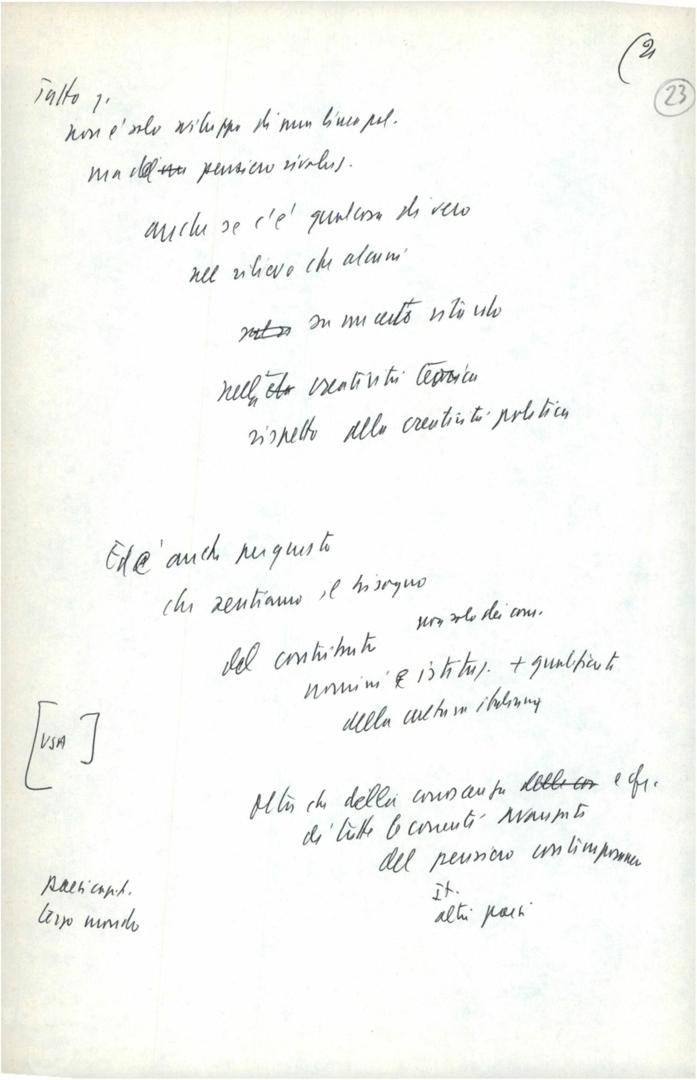 (2
23
Tutto q.
non è solo sviluppo di una linea pol.
ma del pensiero rivoluz.
anche se c'è qualcosa di vero
nel rilievo che alcuni
su un certo ritardo
nella creatività teorica
rispetto alla creatività politica
Ed è anche per questo
che sentiamo il bisogno
del contributo non solo dei com.
uomini e istituz. + qualificati
della cultura italiana
[USA]
oltre che della conoscenza e
di tutte le correnti avanzate
del pensiero contemporaneo
It.
altri paesi
Paesi capit.
terzo mondo